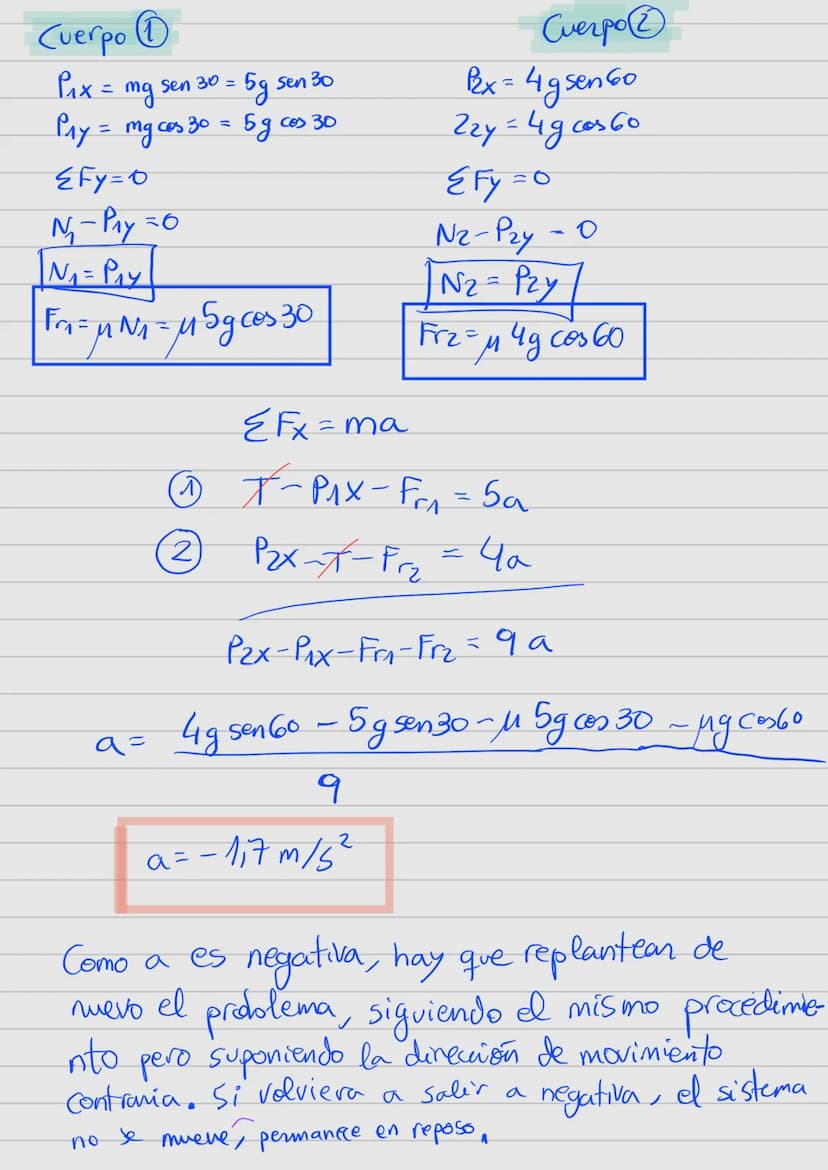 Cuerpo ①
P1x = mg sen 30 = 5g sen 30
P1y = mg cos 30 = 5g cos 30
ΣFy=0
N1-P1y=0
N1=P1y
Fr1=μN1=μ5g cos 30
Cuerpo ②
P2x = 4g sen 60
22y = 4g cos 60
ΣFy=0
N2-P2y - 0
N2 = P2y
Fr2=μ 4g cos 60
ΣFx = ma
① T-P1X-Fr1 = 5a
② P2x-T-Fr2 = 4a
P2x-P1x-Fr1-Fr2 = 9a
a= 4g sen 60 - 5g sen 30 - μ 5g cos 30 - μg cos 60
9
a=-1,7 m/s²
Como a es negativa, hay que replantear de
nuevo el problema, siguiendo el mismo procedimie-
nto pero suponiendo la dirección de movimiento
contraria. Si volviera a salir a negativa, el sistema
no se mueve, permanece en reposo.